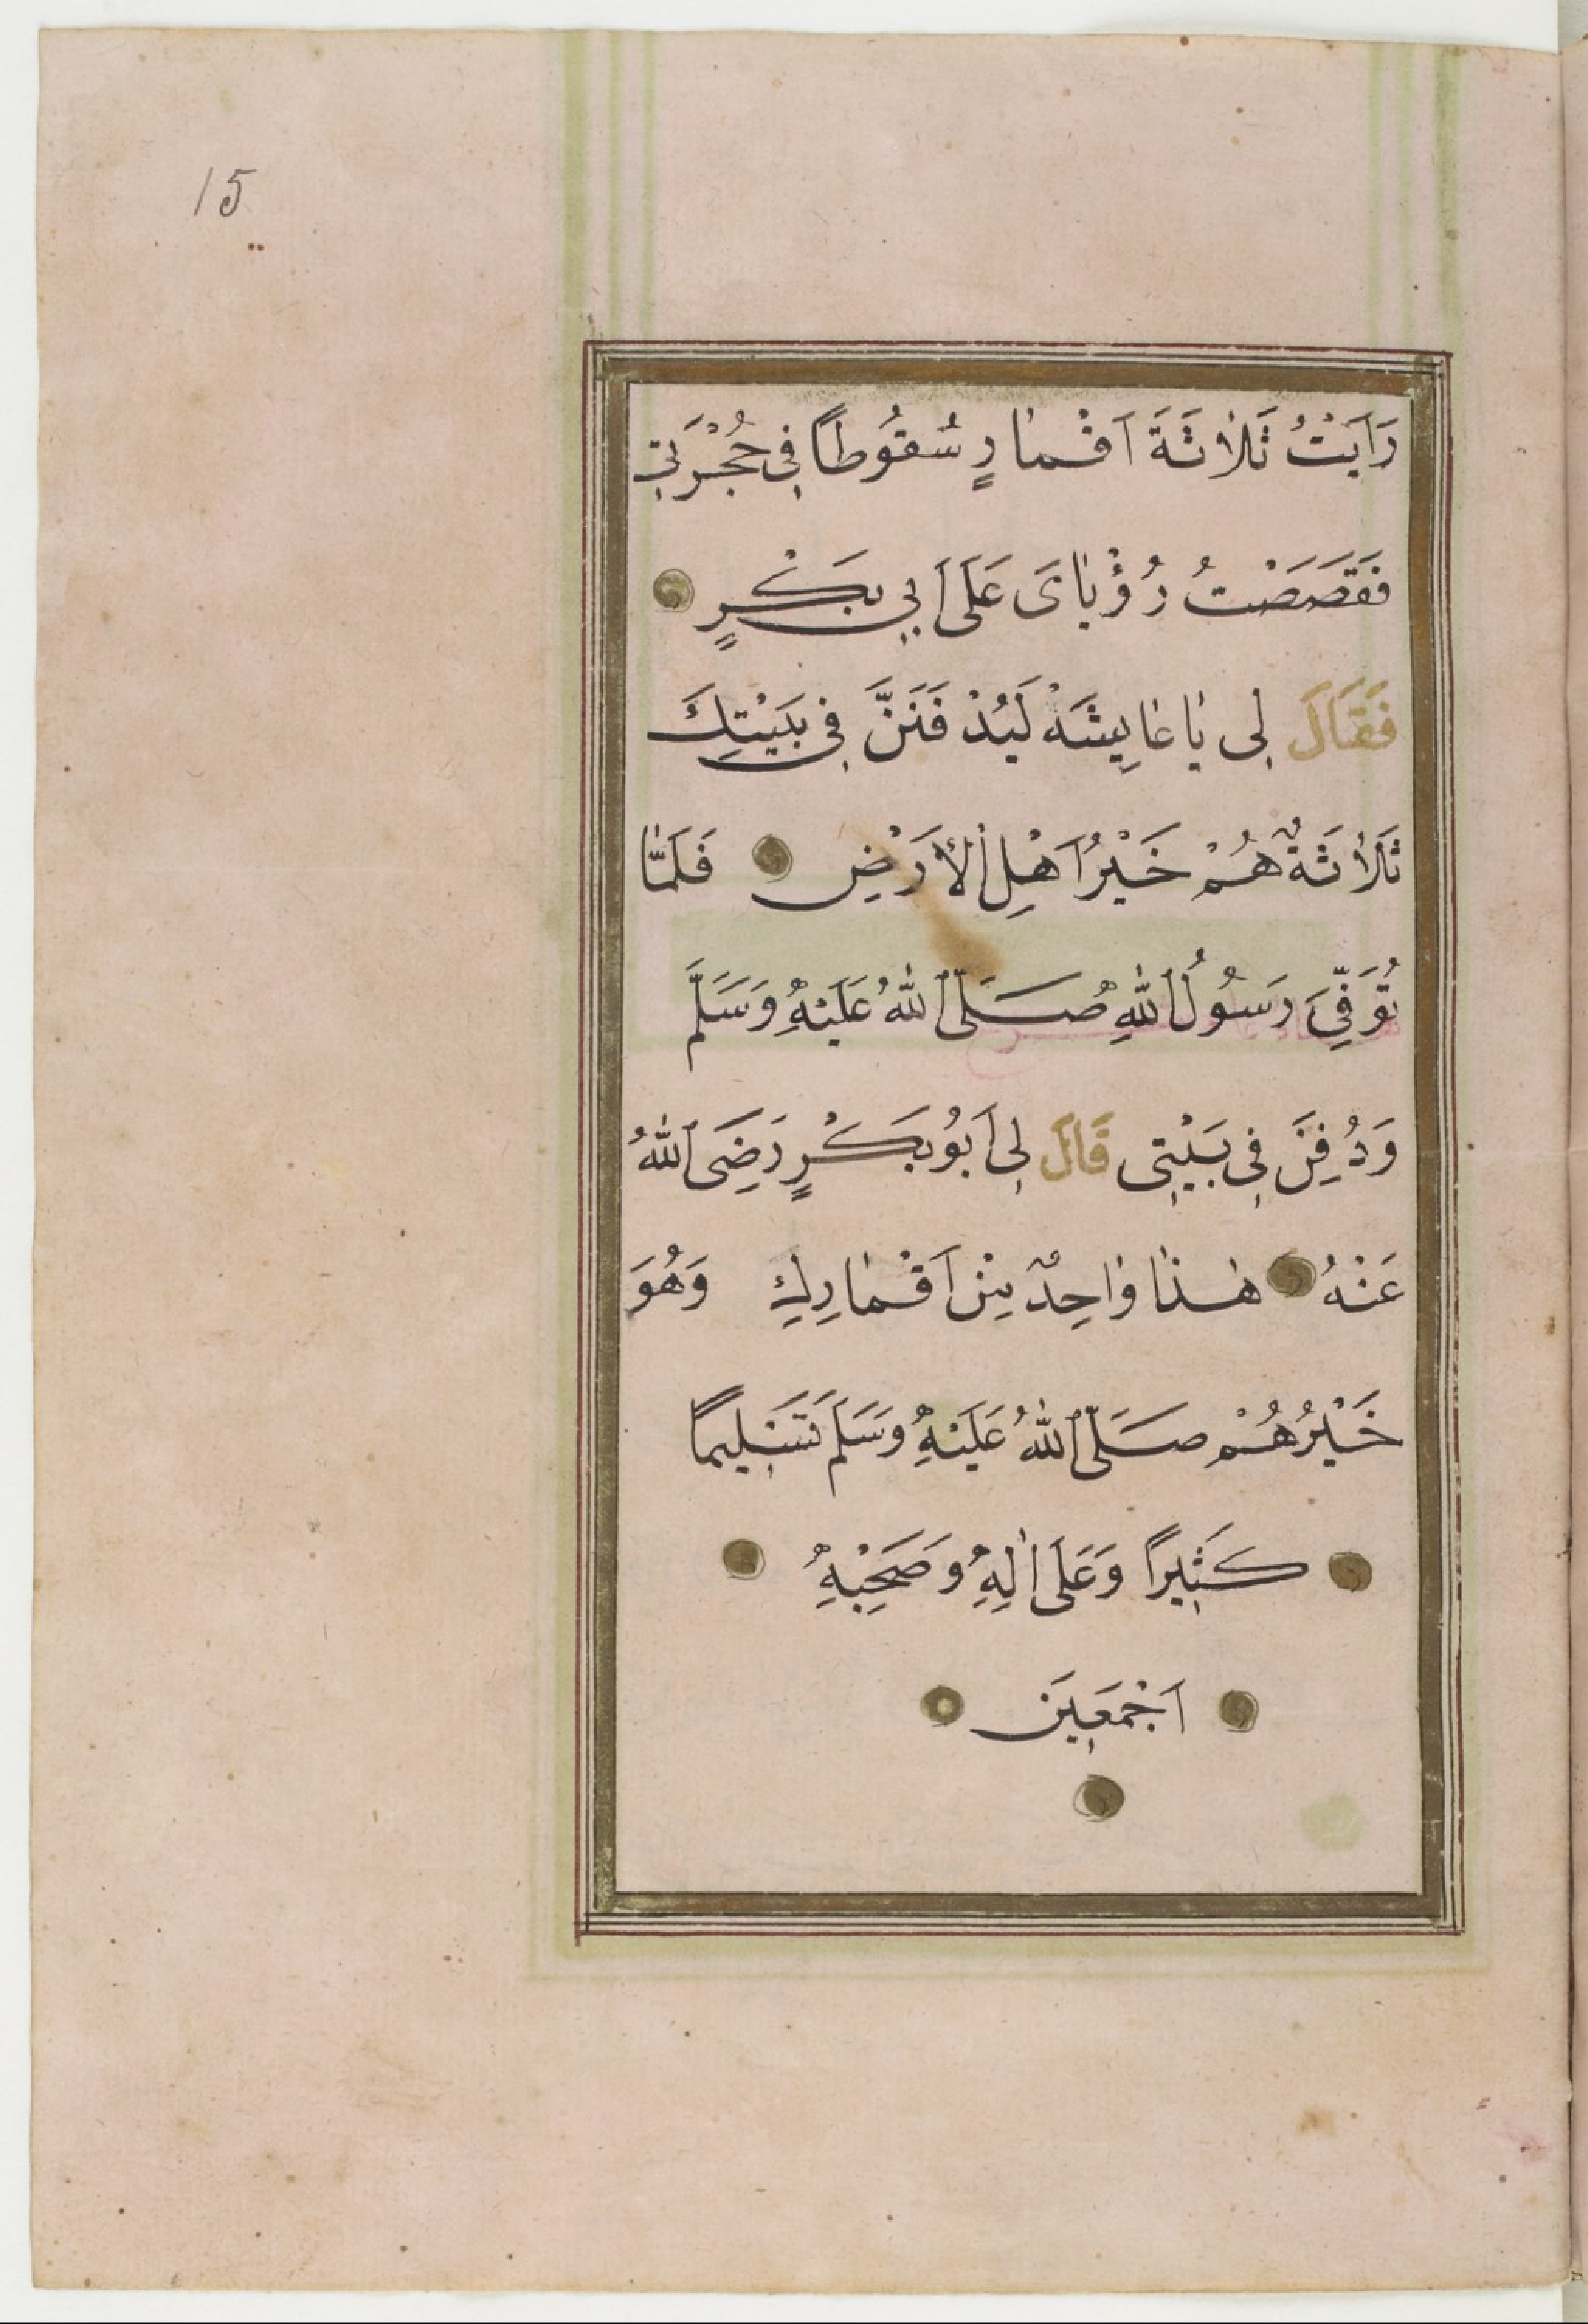 15
رَاَيْتُ ثَلَاثَةَ اَقْمَارٍ سُقُوطًا فِي حُجْرَتِي
فَقَصَصْتُ رُؤْيَايَ عَلَى اَبِي بَكْرٍ
فَقَالَ لِي يَا عَايِشَةْ لَيُدْفَنَنَّ فِي بَيْتِكَ
ثَلَاثَةٌ هُمْ خَيْرُ اَهْلِ الْاَرْضِ فَلَمَّا
تُوَفِّيَ رَسُولُ اللهِ صَلَّى اللهُ عَلَيْهِ وَسَلَّمَ
وَدُفِنَ فِي بَيْتِي قَالَ لِي اَبُو بَكْرٍ رَضِيَ اللهُ
عَنْهُ هٰذَا وَاحِدٌ مِنْ اَقْمَارِكِ وَهُوَ
خَيْرُهُمْ صَلَّى اللهُ عَلَيْهِ وَسَلَّمَ تَسْلِيمًا
كَثِيرًا وَعَلَى اٰلِهِ وَصَحْبِهِ
اَجْمَعِينَ